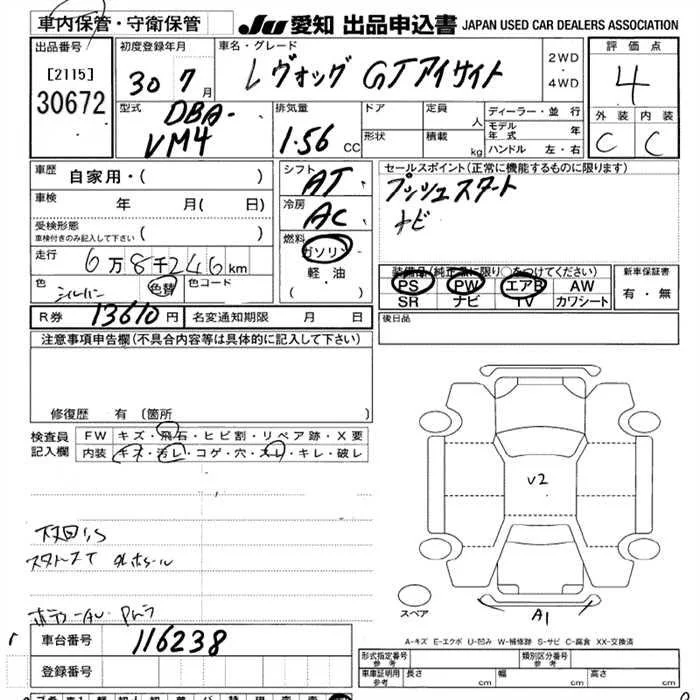 車内保管・守衛保管
JU 愛知 出品申込書 JAPAN USED CAR DEALERS ASSOCIATION
出品番号
[2115]
30672
初度登録年月
30 7月
車名・グレード
レヴォーグ GTアイサイト
2WD
・
4WD
評価点
4
外装 内装
C C
型式
DBA-
VM4
排気量
1.56 CC
ドア
形状
定員
人
積載
kg
ディーラー・並行
モデル年式 年
ハンドル 左・右
車歴
自家用・( )
車検
年 月( 日)
受検形態
車検付きのみ記入して下さい ( )
走行
6万8千246km
色
シルバー
色替
色コード
シフト
AT
冷房
AC
燃料
ガソリン
軽・油
( )
セールスポイント(正常に機能するものに限ります)
プッシュスタート
ナビ
装備品(純正品に限り○をつけてください)
PS PW エアB AW
SR ナビ TV カワシート
新車保証書
有・無
R券 13610円
名変通知期限 月 日
後日品
注意事項申告欄(不具合内容等は具体的に記入して下さい)
修復歴 有 〔箇所 〕
検査員
記入欄
FW キズ・飛石・ヒビ割・リペア跡・X要
内装 キズ・汚レ・コゲ・穴・スレ・キレ・破レ
V2
A1
スペア
下回りS
A-キズ E-エクボ U-凹み W-補修跡 S-サビ C-腐食 XX-交換済
車台番号 116238
登録番号
形式指定番号 参考
類別区分番号 参考
車両証明用 参考
長さ cm 幅 cm 高さ cm